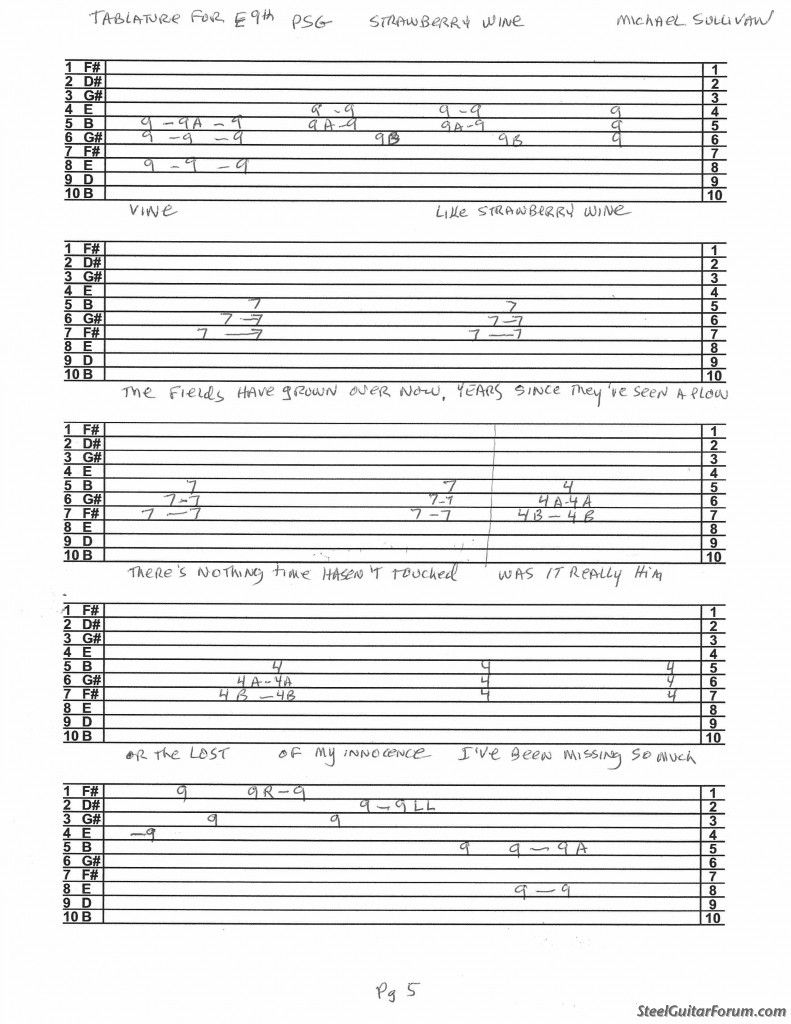 TABLATURE FOR E9th PSG STRAWBERRY WINE MICHAEL SULLIVAN
1 F# 1
2 D# 2
3 G# 3
4 E 9 -9 9 -9 9 4
5 B 9 -9A -9 9A-9 9A-9 9 5
6 G# 9 -9 -9 9B 9B 9 6
7 F# 7
8 E 9 -9 -9 8
9 D 9
10 B 10
VINE LIKE STRAWBERRY WINE
1 F# 1
2 D# 2
3 G# 3
4 E 4
5 B 7 7 5
6 G# 7-7 7-7 6
7 F# 7 —7 7 —7 7
8 E 8
9 D 9
10 B 10
THE FIELDS HAVE GROWN OVER NOW, YEARS SINCE THEY'VE SEEN A PLOW
1 F# 1
2 D# 2
3 G# 3
4 E 4
5 B 7 7 4 5
6 G# 7-7 7-7 4A-4A 6
7 F# 7 —7 7 -7 4B — 4B 7
8 E 8
9 D 9
10 B 10
THERE'S NOTHING TIME HASEN'T TOUCHED WAS IT REALLY HIM
1 F# 1
2 D# 2
3 G# 3
4 E 4
5 B 4 4 4 5
6 G# 4A-4A 4 4 6
7 F# 4B —4B 4 4 7
8 E 8
9 D 9
10 B 10
OR THE LOST OF MY INNOCENCE I'VE BEEN MISSING SO MUCH
1 F# 9 9R-9 1
2 D# 9 -9LL 2
3 G# 9 9 3
4 E —9 4
5 B 9 9 — 9A 5
6 G# 6
7 F# 7
8 E 9 —9 8
9 D 9
10 B 10
Pg 5
SteelGuitarForum.com